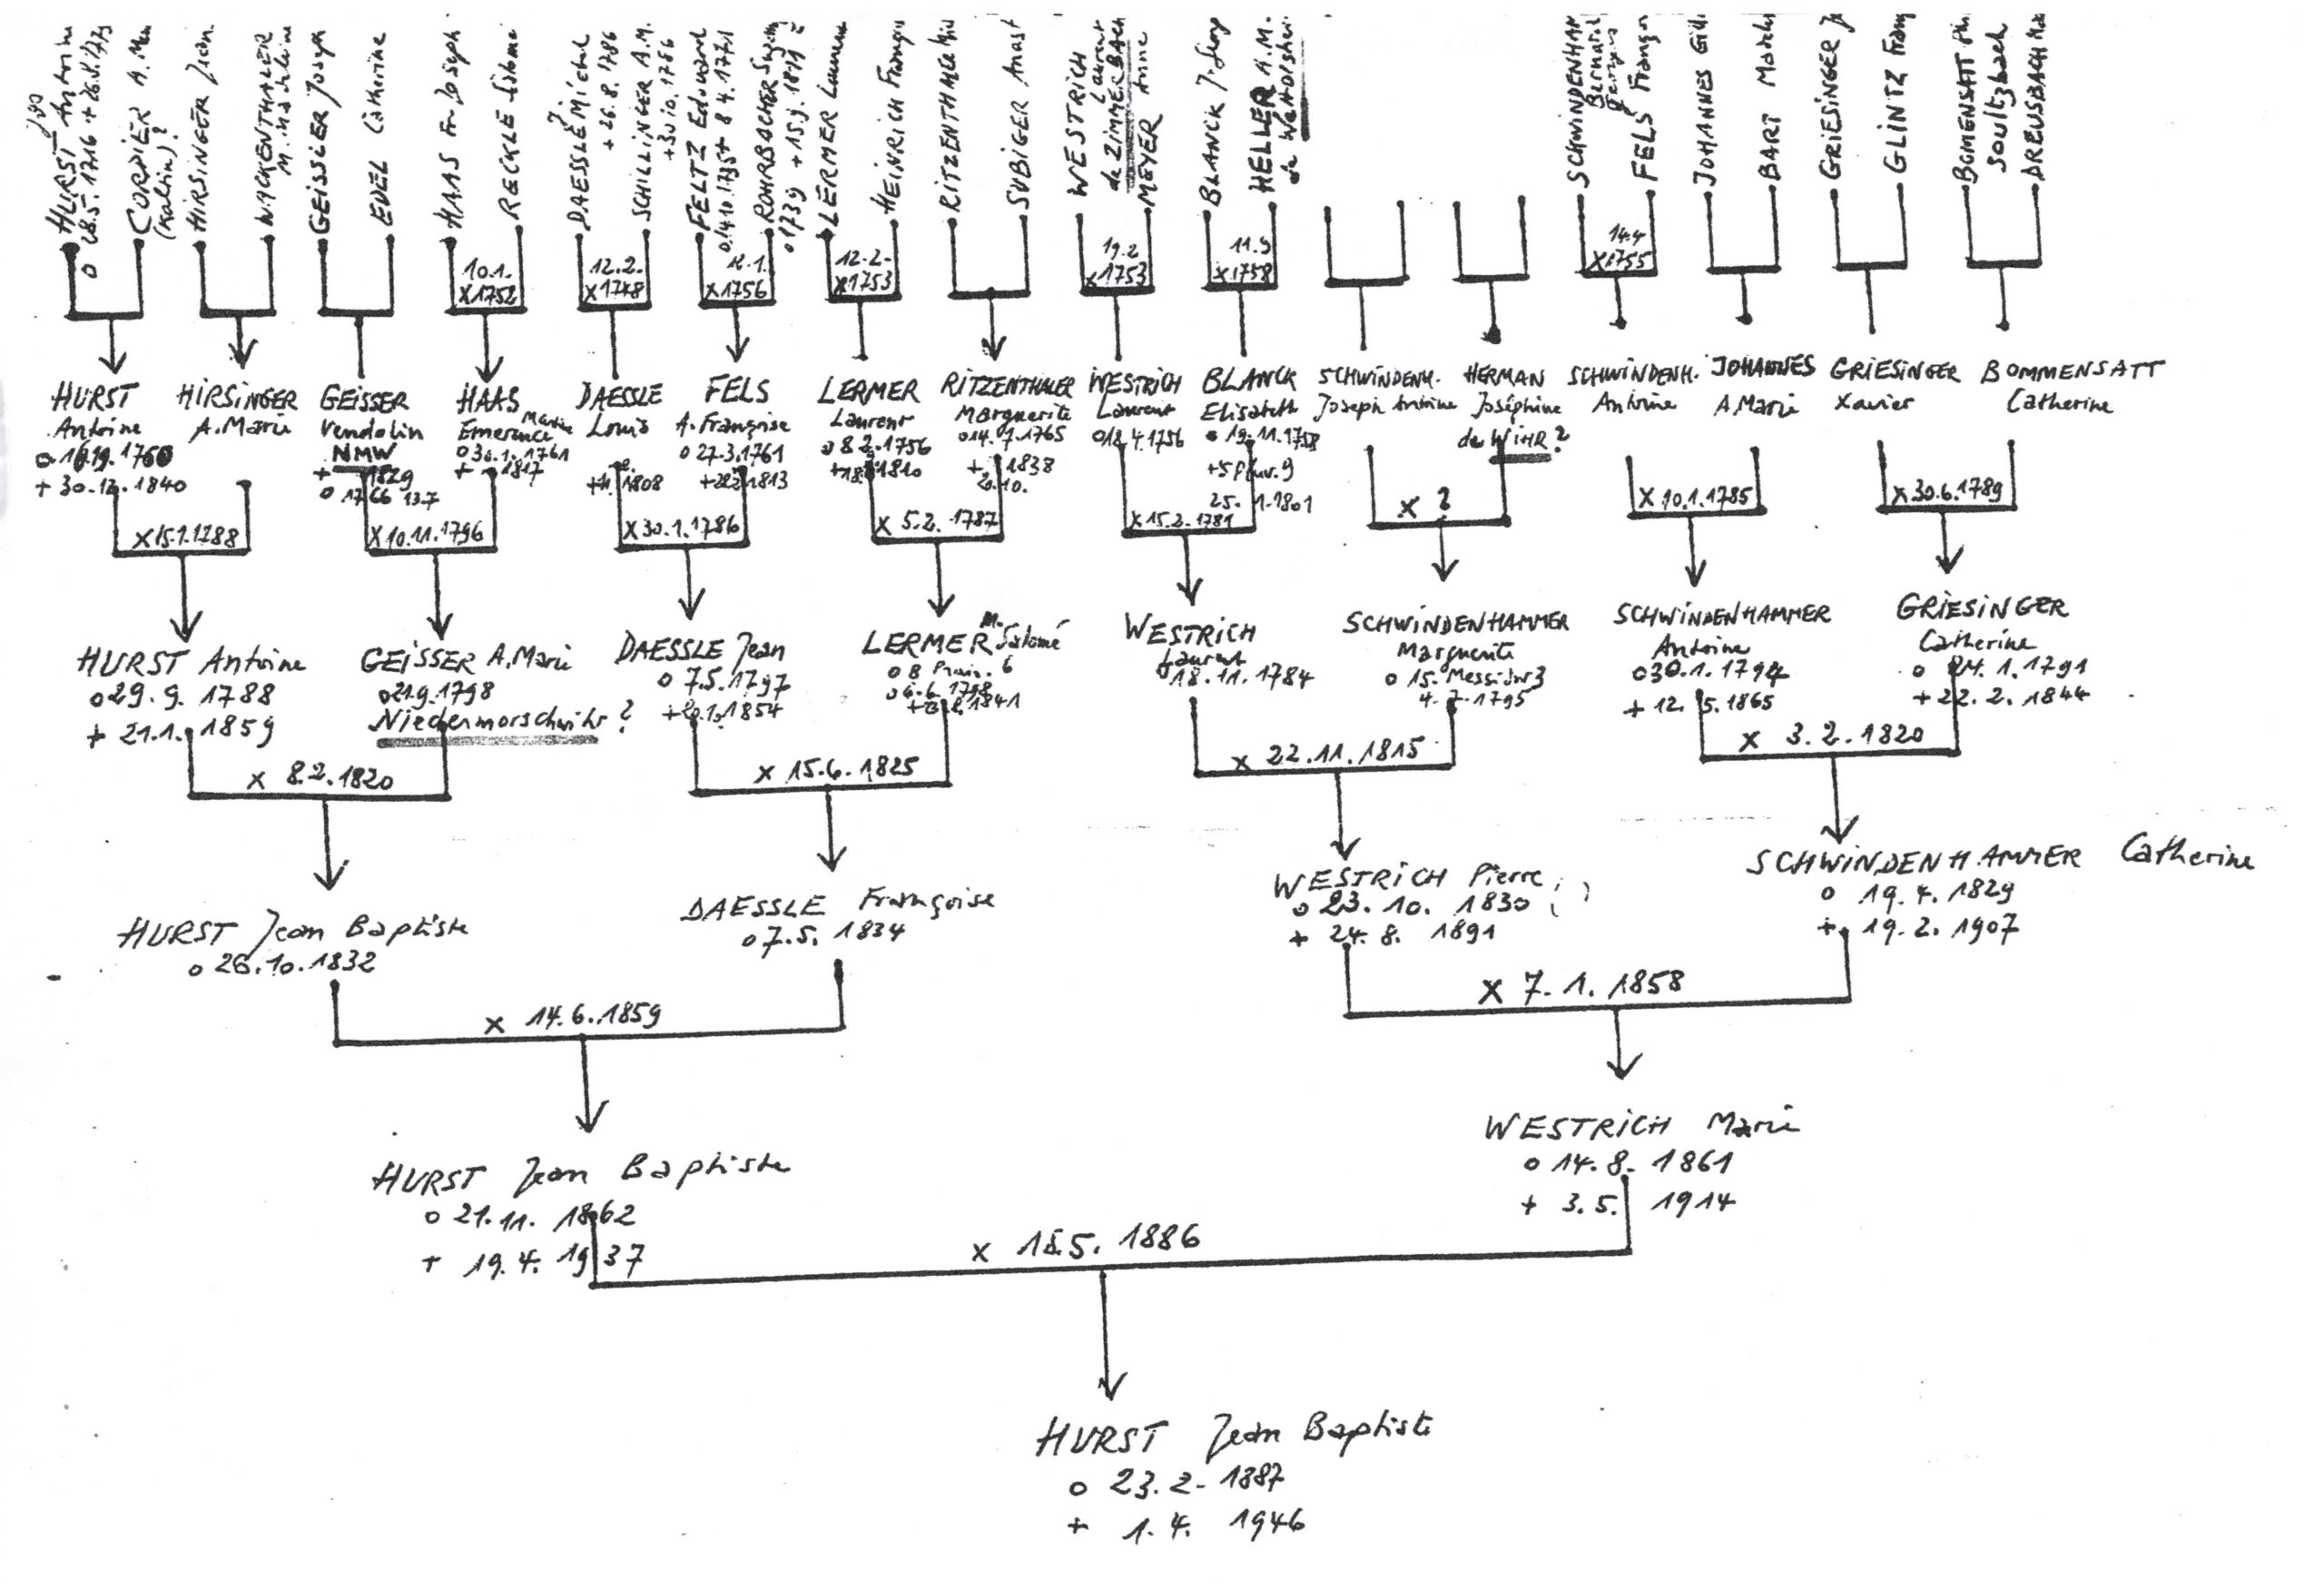 HURST Antoine
o 28.5.1716 + 26.
CORDIER A.
(Kaltin)?
HIRSINGER Jean
WICKENTHALER
GEISSLER Joseph
EDEL Catherine
HAAS Fr. Joseph
RECKLE Salomé
DAESSLE Michel
+ 26.8.1786
SCHILLINGER A.M.
+ 30.10.1786
FELTZ Edouard
ROHRBACHER
LERMER Laurent
HEINRICH
RITZENTHALER
SUBIGER Anast
WESTRICH
Laurent
de ZIMMERBACH
MEYER Anne
BLANCK J.
HELLER A.M.
de
SCHWINDENHAM
Bernard
FELS
JOHANNES
BART
GRIESINGER
GLINTZ
BOMENSATT
Soultzbach
DREUSBACH
10.1.
X 1752
12.2.
X 1748
X 1756
12.2.
X 1753
19.2
X 1753
11.9
X 1758
14.4
X 1755
HURST
Antoine
+ 30.12.1840
HIRSINGER
A.Marie
GEISSER
Vendolin
NMW
+ 1829
o 1766 13.7
HAAS
Emerence
o 1761
+ 1817
DAESSLE
Louis
1808
FELS
A. Françoise
o 27.3.1761
1813
LERMER
Laurent
o 8.2.1756
1810
RITZENTHALER
Marguerite
o 14.7.1765
+ 1838
WESTRICH
Laurent
o 4.1756
BLANCK
Elisabeth
19.11.1758
25. 1.1801
SCHWINDENH.
Joseph Antoine
HERMAN
Joséphine
de WIHR ?
SCHWINDENH.
Antoine
JOHANNES
A.Marie
GRIESINGER
Xavier
BOMMENSATT
Catherine
X 15.1.1788
X 10.11.1796
X 30.1.1786
X 5.2.1787
X 15.2.1781
X ?
X 10.1.1785
X 30.6.1789
HURST Antoine
o 29.9.1788
+ 21.1.1859
GEISSER A.Marie
o 21.9.1798
Niedermorschwihr ?
DAESSLE Jean
o 7.5.1797
1854
LERMER M. Salomé
o 8 Prair. 6
1841
WESTRICH
Laurent
18.11.1784
SCHWINDENHAMMER
Marguerite
o 15. Messidor 3
4.7.1795
SCHWINDENHAMMER
Antoine
o 30.1.1794
+ 12.5.1865
GRIESINGER
Catherine
o 24.1.1791
+ 22.2.1844
X 8.2.1820
X 15.6.1825
X 22.11.1815
X 3.2.1820
HURST Jean Baptiste
o 26.10.1832
DAESSLE Françoise
o 7.5.1834
WESTRICH Pierre
o 23.10.1830
+ 24.8.1891
SCHWINDENHAMMER Catherine
o 19.4.1829
+ 19.2.1907
X 14.6.1859
X 7.1.1858
HURST Jean Baptiste
o 21.11.1862
+ 19.4.1937
WESTRICH Marie
o 14.8.1861
+ 3.5.1914
X 18.5.1886
HURST Jean Baptiste
o 23.2.1887
+ 1.4.1946